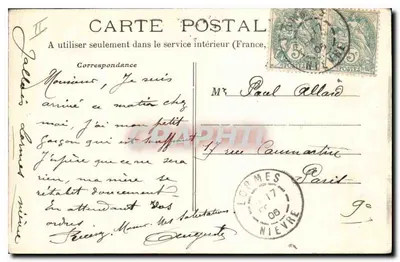 II
CARTE POSTALE
A utiliser seulement dans le service intérieur (France,
Correspondance
Monsieur, Je suis
arrivé ce matin chez
moi. J'ai mon petit
garçon qui est souffrant
J'espère que ce ne sera
rien, ma mère se
rétablit doucement
En attendant vos
ordres
Recevez Mons. mes Salutations
Auguste
Lormes
Nièvre
Mr Paul Allard
17 rue Caumartin
Paris
9e
LORMES
17
06
NIEVRE
LORMES
17
06
NIEVRE